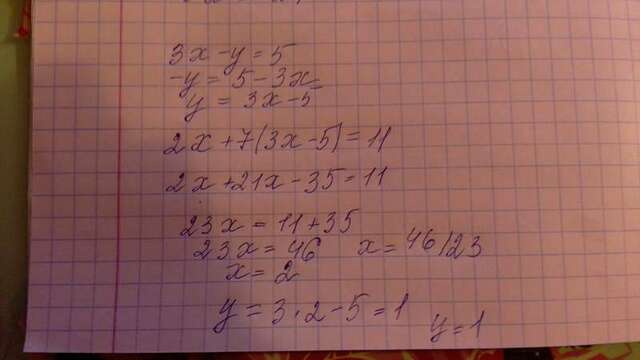 3x - y = 5
-y = 5 - 3x
y = 3x - 5
2x + 7(3x - 5) = 11
2x + 21x - 35 = 11
23x = 11 + 35
23x = 46 x = 46/23
x = 2
y = 3 · 2 - 5 = 1 y = 1